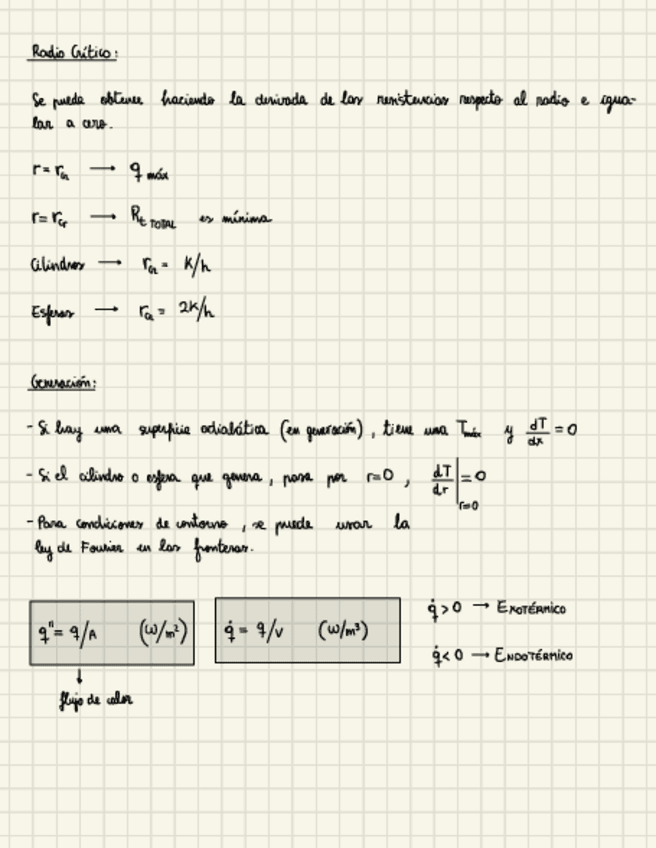 Radio Crítico:
Se puede obtener haciendo la derivada de las resistencias respecto al radio e igua-
lar a cero.
r = r_cr → q máx
r = r_cr → R_t TOTAL es mínima
Cilindros → r_cr = K/h
Esferas → r_cr = 2K/h
Generación:
- Si hay una superficie adiabática (en generación), tiene una T_máx y dT/dx = 0
- Si el cilindro o esfera que genera, pasa por r=0, dT/dr |_r=0 = 0
- Para condiciones de contorno, se puede usar la
ley de Fourier en las fronteras.
q" = q/A (W/m²) q̇ = q/V (W/m³) q̇ > 0 → EXOTÉRMICO
q̇ < 0 → ENDOTÉRMICO
↓
flujo de calor